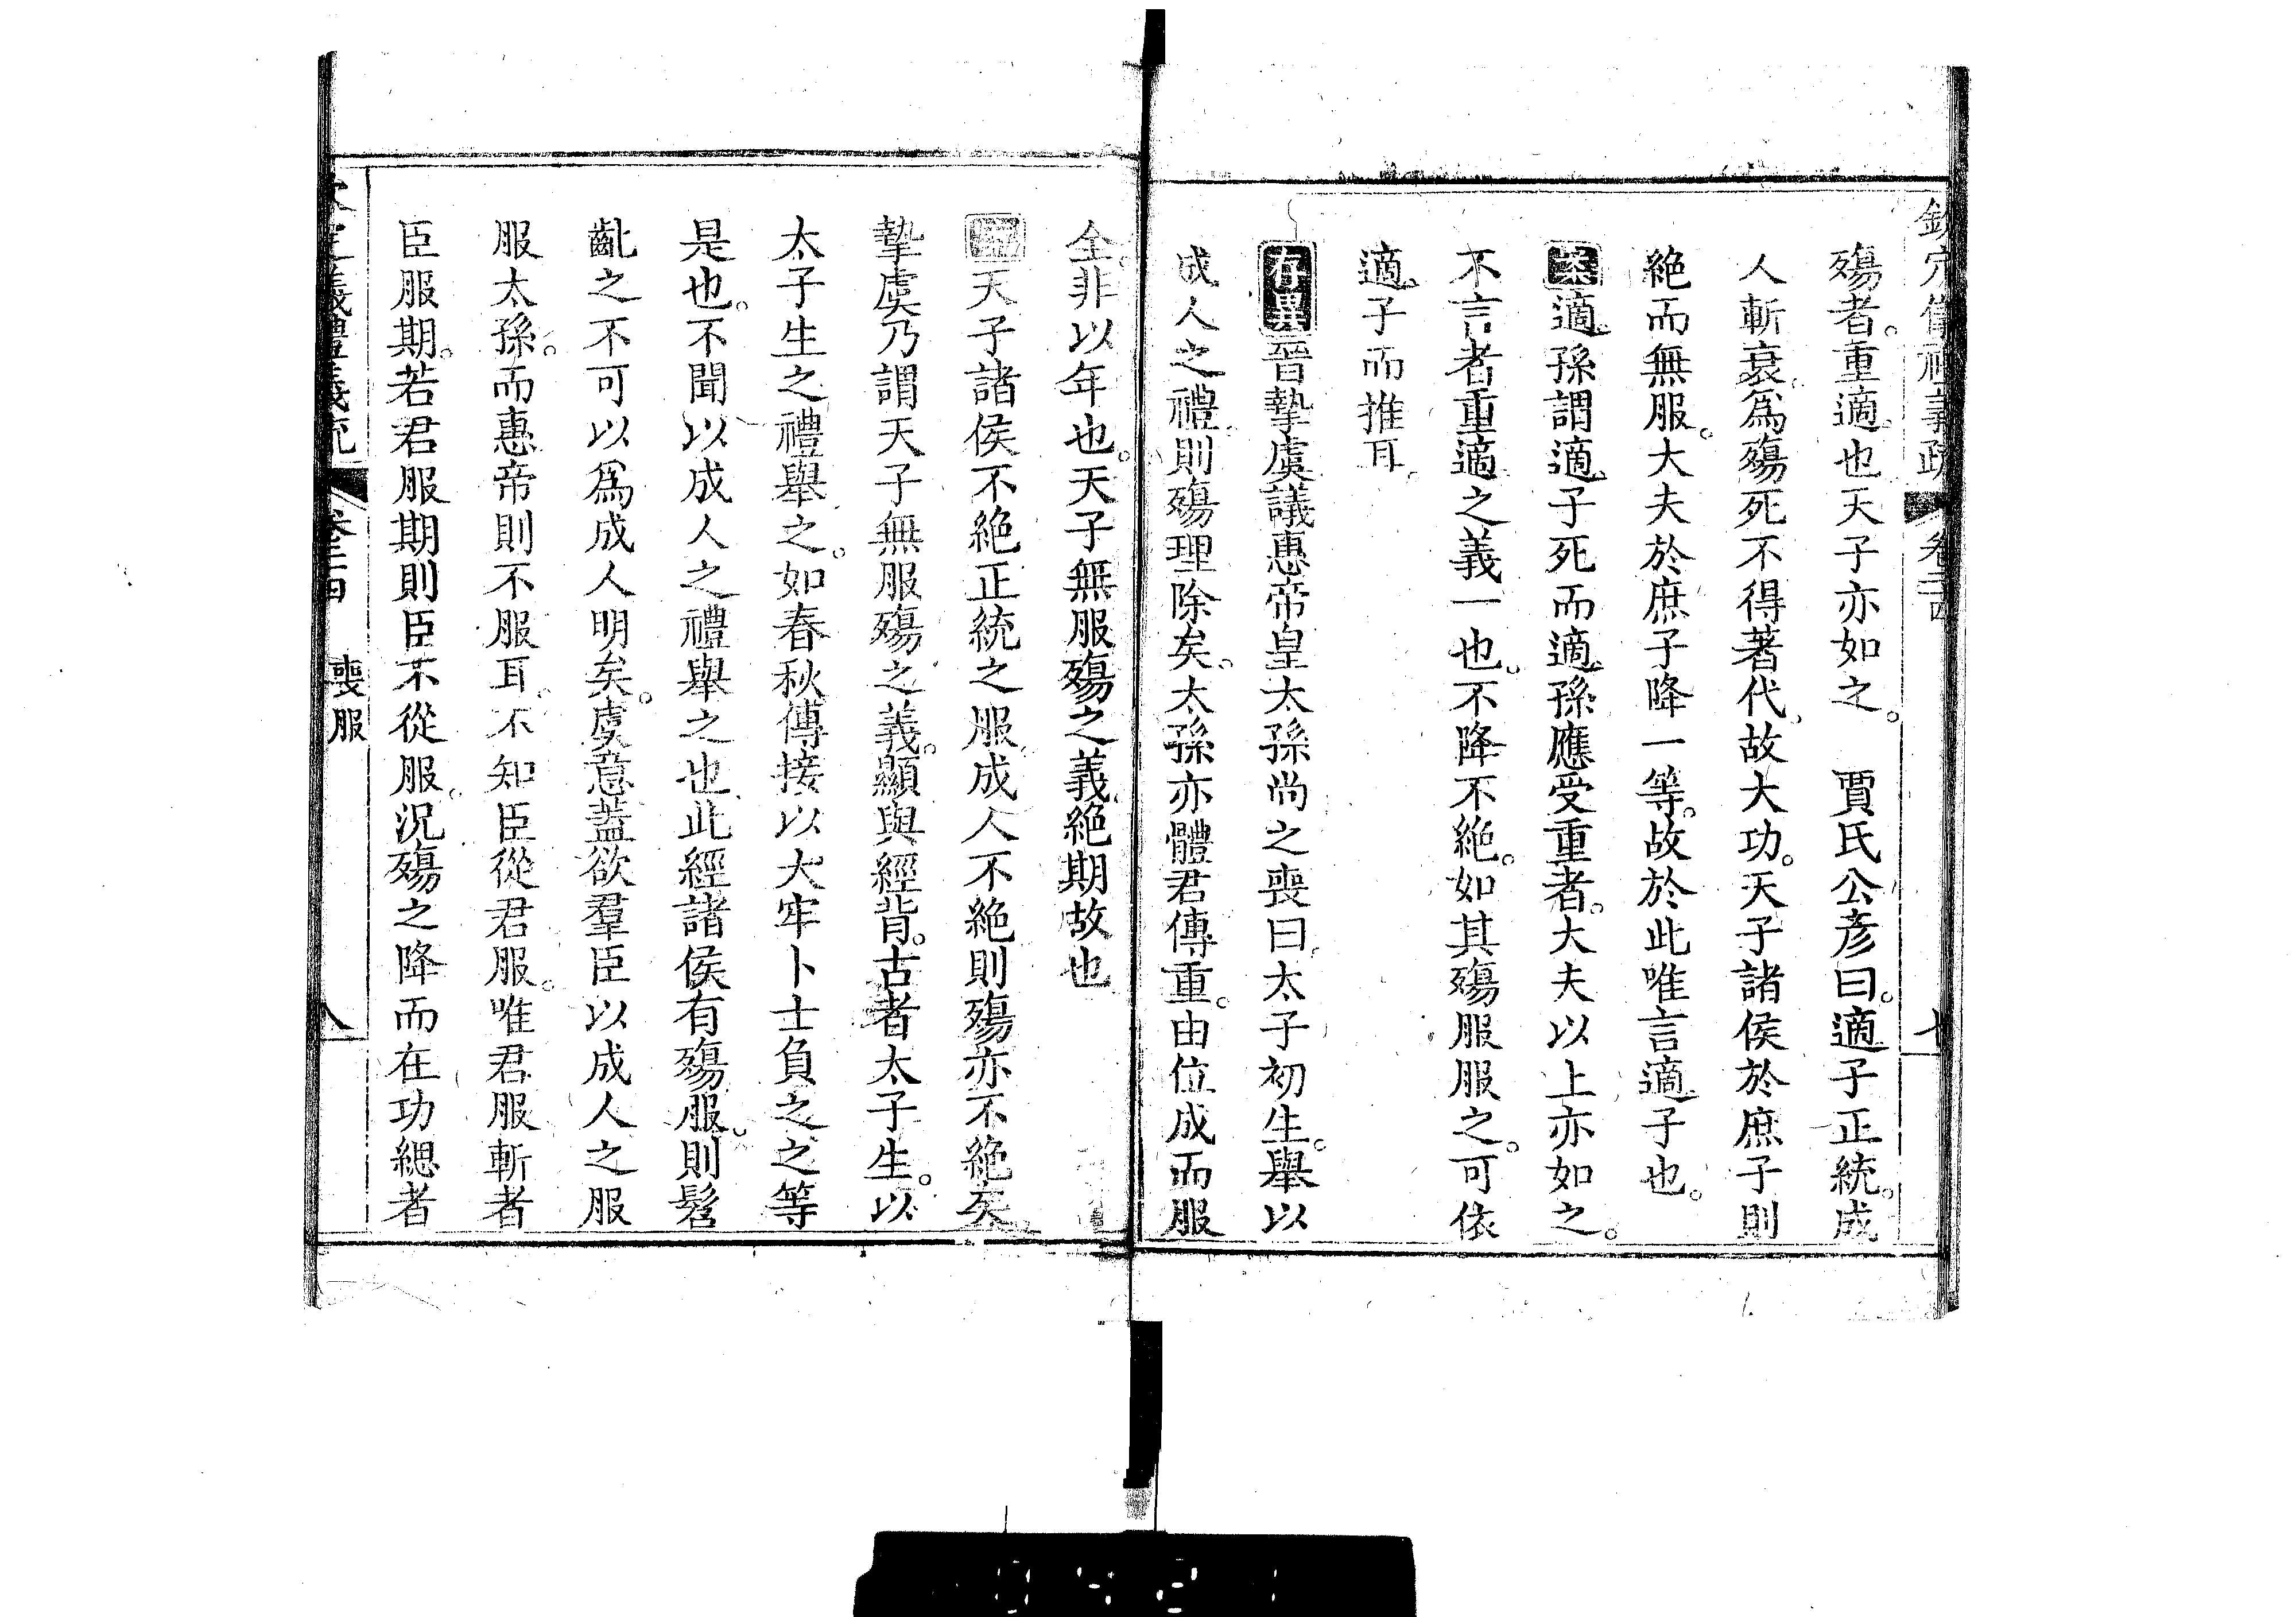 欽定儀禮義疏 卷二十四 七
殤者。重適也天子亦如之。 賈氏公彥曰。適子正統。成
人斬衰。爲殤死不得著代。故大功。天子諸侯於庶子則
絶而無服。大夫於庶子降一等。故於此唯言適子也。
案適孫謂適子死而適孫應受重者。大夫以上亦如之。
不言者重適之義一也。不降不絶。如其殤服服之。可依
適子而推耳。
存異晉摯虞議惠帝皇太孫尚之喪曰。太子初生。舉以
成人之禮。則殤理除矣。太孫亦體君傳重。由位成而服
全。非以年也。天子無服殤之義。絶期故也
天子諸侯不絶正統之服。成人不絶則殤亦不絶矣。
摯虞乃謂天子無服殤之義。顯與經背。古者太子生。以
太子生之禮舉之。如春秋傳接以大牢卜士負之之等
是也。不聞以成人之禮舉之也此經諸侯有殤服。則髫
齔之不可以爲成人明矣。虞意蓋欲羣臣以成人之服
服太孫。而惠帝則不服耳。不知臣從君服。唯君服斬者
臣服期。若君服期則臣不從服。況殤之降而在功緦者
欽定儀禮義疏 卷二十四 喪服 八